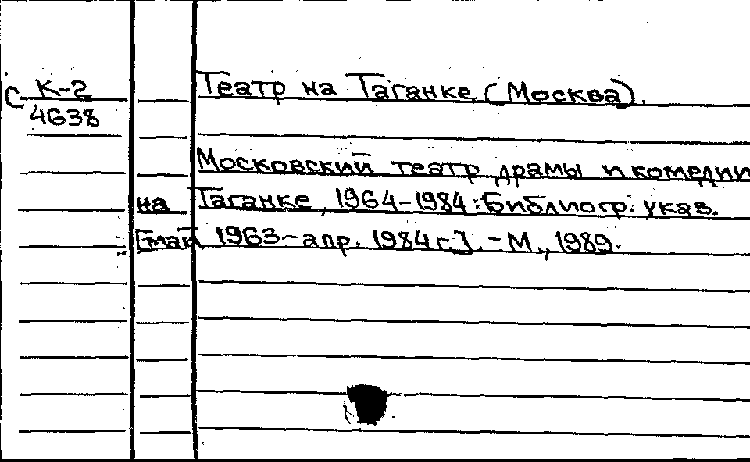 С К-2
4638
Театр на Таганке (Москва).
Московский театр драмы и комедии
на Таганке, 1964-1984: Библиогр. указ.
[май 1963-апр. 1984 г.]. - М., 1989.